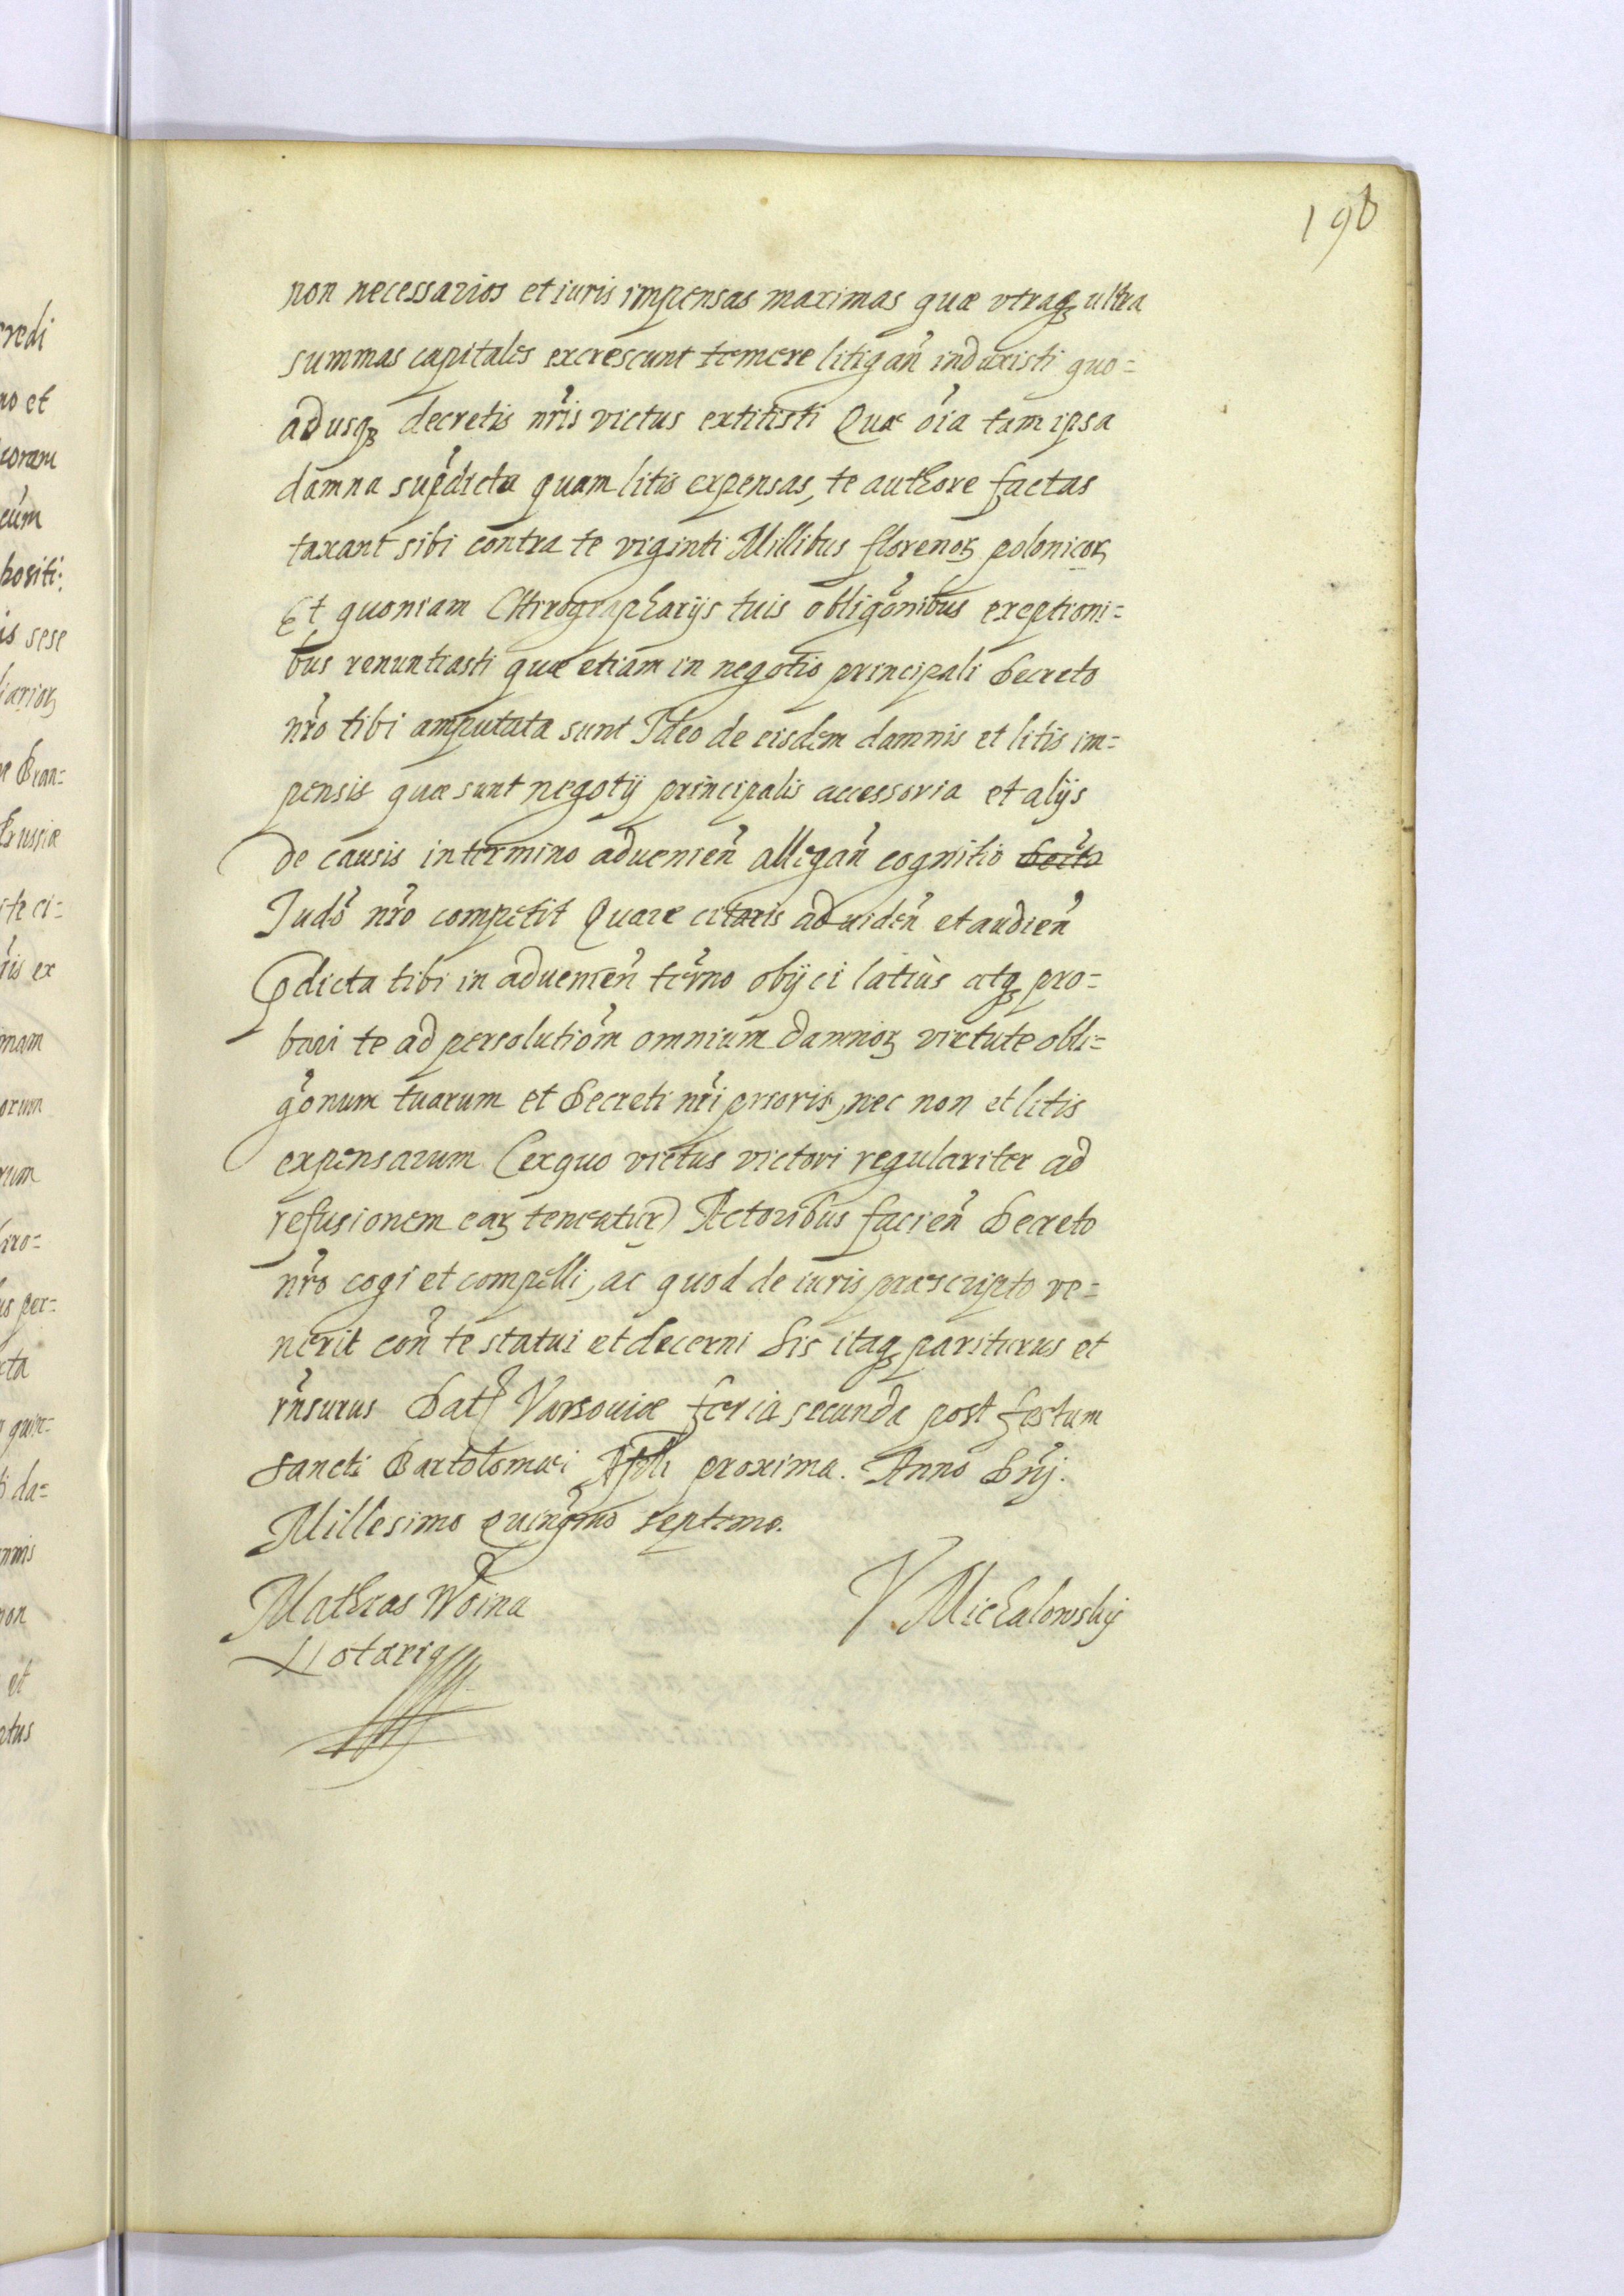 198
non necessarios et iuris impensas maximas quæ vtraqꝫ ultra
summas capitales excrescunt temere litigan̄ induxisti quo=
adusqꝫ decretis nr̄is victus extitisti Quæ oīa tam ipsa
damna sup̄dicta quam litis expensas, te authore factas
taxant sibi contra te viginti Millibus florenoꝝ polonicoꝝ
Et quoniam Chirographarijs tuis obligōnibus exceptioni=
bus renuntiasti quæ etiam in negotio principali Decreto
nr̄o tibi amputata sunt Ideo de eisdem damnis et litis im=
pensis quæ sunt negotij principalis accessoria et alijs
de causis in termino aduenien̄ allegan̄ cognitio
Judō nr̄o competit Quare citaris ad uiden̄ et audien̄
Pdicta tibi in aduenien̄ termo obijci latiùs atqꝫ pro=
bari te ad persolutiom̄ omnium damnoꝝ virtute obli=
gōnum tuarum et Decreti nr̄i prioris, nec non et litis
expensarum (ex quo victus victori regulariter ad
refusionem eaꝝ teneatur) Actoribus facien̄ Decreto
nr̄o cogi et compelli, ac quod de iuris præscripto ve=
nerit con̄ te statui et decerni Sis itaqꝫ pariturus et
rn̄surus Dat Varsouiæ feria secunda post festum
Sancti Bartolomæi Apli proxima. Anno Dn̄j.
Millesimo Quingmo septimo.
Mathias Woina
Notariq
V. Michalowskij
redi
no et
coram
is sese
Bran=
russiæ
ite ci=
is ex
orum
us per=
da=
non
et